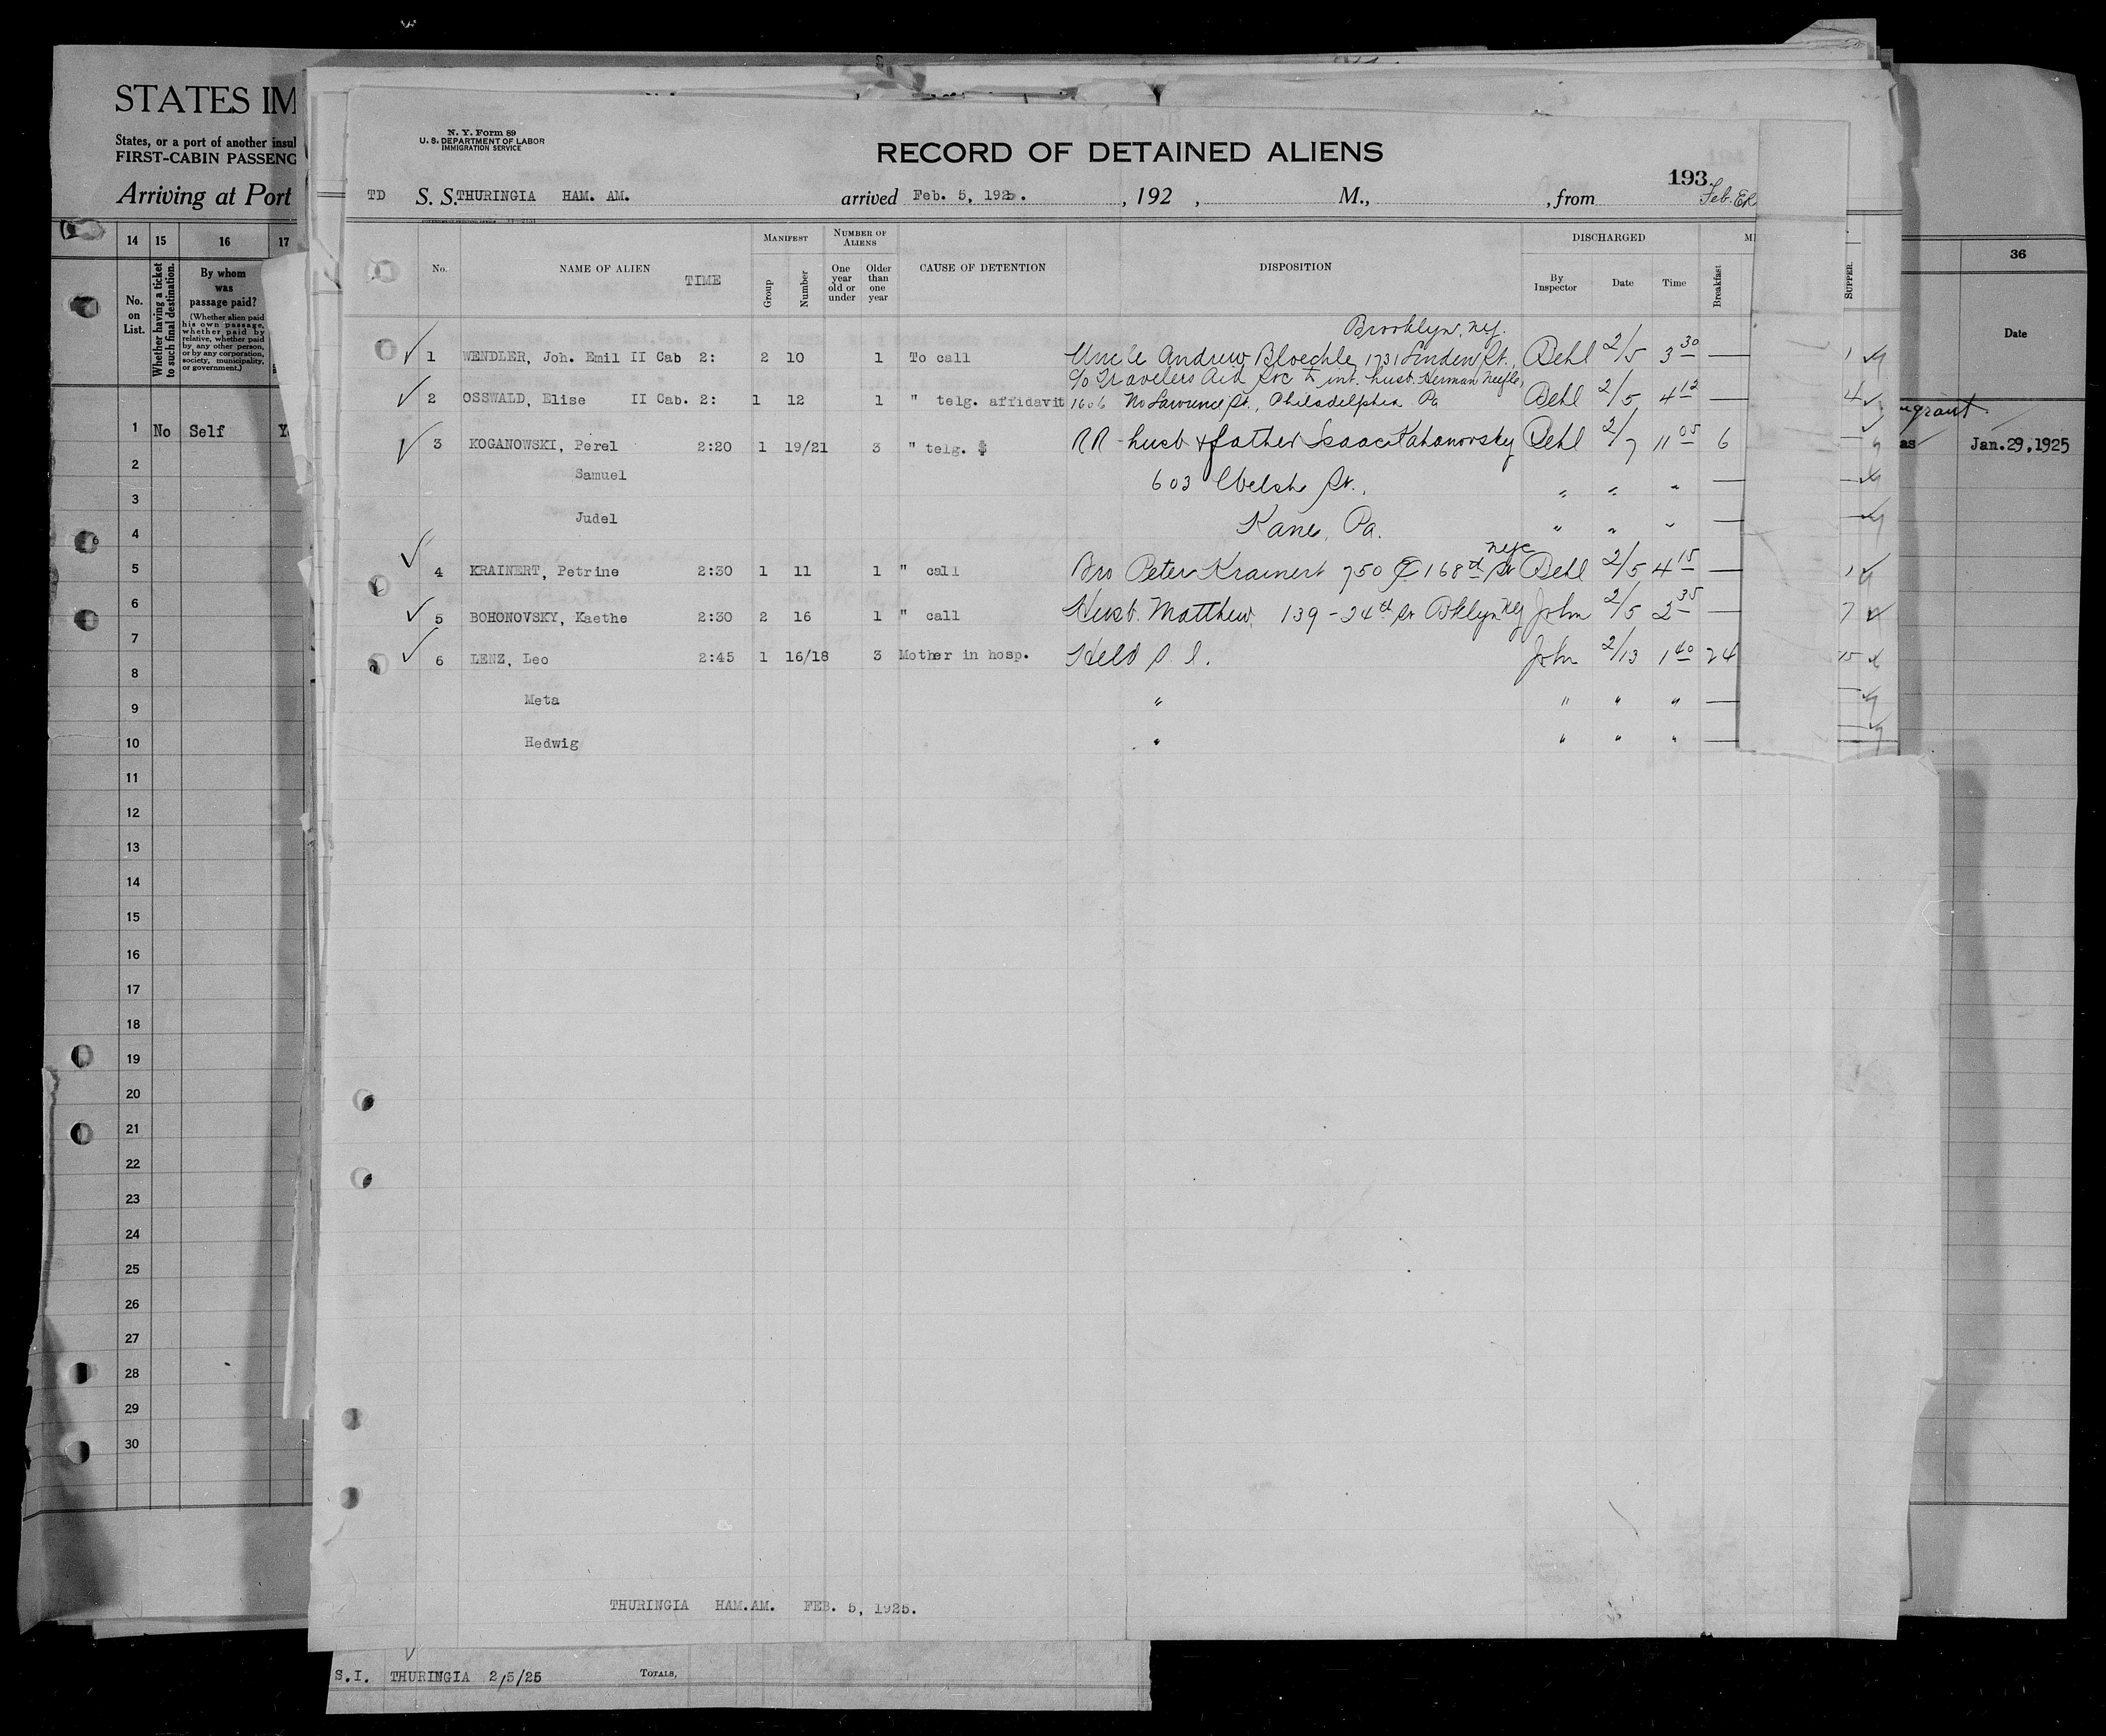 STATES IM
States, or a port of another insul
FIRST-CABIN PASSENG
Arriving at Port
14 15 16 17
No. on List.
Whether having a ticket to such final destination.
By whom was passage paid?
(Whether alien paid his own passage, whether paid by relative, whether paid by any other person, or by any corporation, society, municipality, or government.)
1 No Self Y
2
3
4
5
6
7
8
9
10
11
12
13
14
15
16
17
18
19
20
21
22
23
24
25
26
27
28
29
30
N. Y. Form 89
U. S. DEPARTMENT OF LABOR
IMMIGRATION SERVICE
RECORD OF DETAINED ALIENS
193
TD S. S. THURINGIA HAM. AM. arrived Feb. 5, 1925. , 192 , M., , from Feb.
No. NAME OF ALIEN TIME
MANIFEST
Group Number
NUMBER OF ALIENS
One year old or under
Older than one year
CAUSE OF DETENTION
DISPOSITION
DISCHARGED
By Inspector Date Time
M
Breakfast
SUPPER.
Brooklyn, N.Y.
1 WENDLER, Joh. Emil II Cab 2: 2 10 1 To call Uncle Andrew Bloechle 1731 Linden St., Behl 2/5 3 30 — 1
c/o Travelers Aid Soc to int. husb. Herman
2 OSSWALD, Elise II Cab. 2: 1 12 1 " telg. affidavit 1606 No Lawrence St., Philadelphia Pa Behl 2/5 4 12 — 4
3 KOGANOWSKI, Perel 2:20 1 19/21 3 " telg. $ RR husb & father Isaac Kahanovsky Behl 2/7 11 05 6 —
Samuel 603 Welsh St., " " " — —
Judel Kane, Pa. " " " — —
NYC
4 KRAINERT, Petrine 2:30 1 11 1 " call Bro Peter Krainert 750 E 168th St Behl 2/5 4 15 — 1
5 BOHONOVSKY, Kaethe 2:30 2 16 1 " call Husb. Matthew 139-24th St Bklyn NY John 2/5 2 35 — 7
6 LENZ, Leo 2:45 1 16/18 3 Mother in hosp. Held S I. John 2/13 1 40 24 15
Meta " " " " — —
Hedwig " " " " — —
THURINGIA HAM.AM. FEB. 5, 1925.
S.I. THURINGIA 2/5/25 TOTALS,
36
Date
as Jan.29,1925